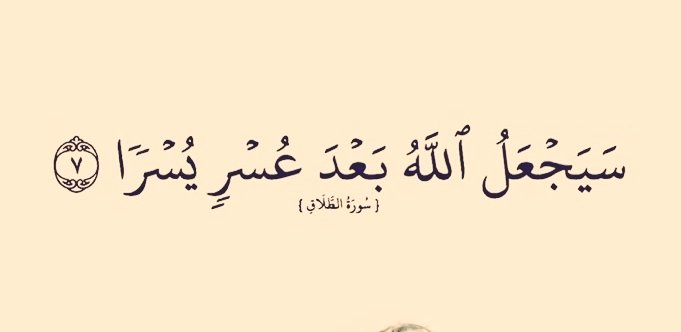 سَيَجْعَلُ ٱللَّهُ بَعْدَ عُسْرٍ يُسْرًا ٧
{ سُورَةُ الطَّلَاقِ }